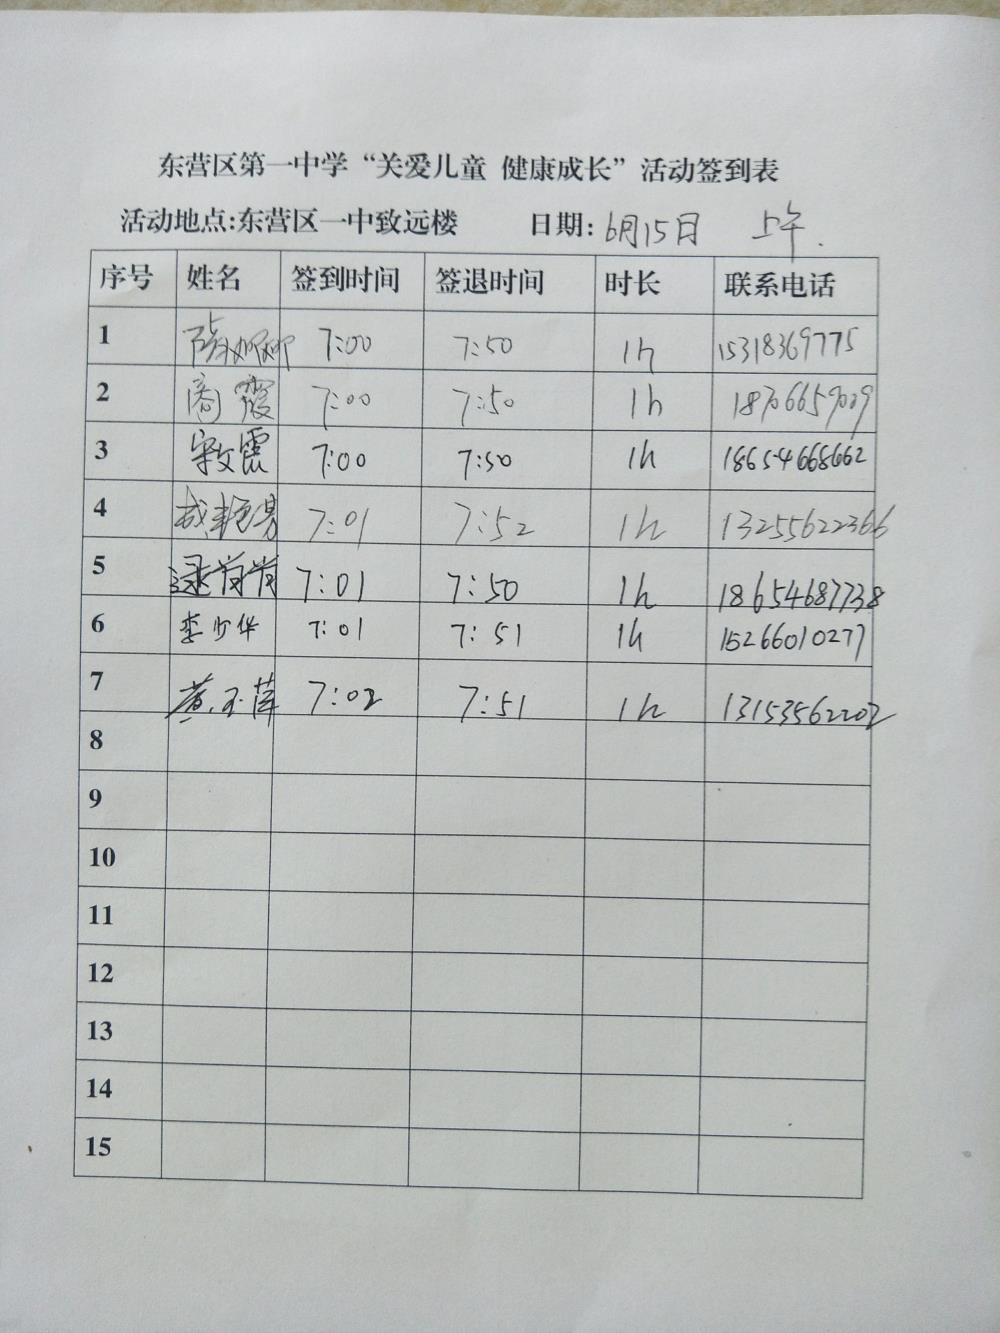 东营区第一中学“关爱儿童 健康成长”活动签到表
活动地点:东营区一中致远楼 日期: 6月15日 上午.
序号 姓名 签到时间 签退时间 时长 联系电话
1 7:00 7:50 1h 15318369775
2 商霞 7:00 7:50 1h 18706659009
3 宋文霞 7:00 7:50 1h 18654668662
4 7:01 7:52 1h 13255622366
5 逯苘苘 7:01 7:50 1h 18654687738
6 李少华 7:01 7:51 1h 15266010277
7 黄玉萍 7:02 7:51 1h 13153562202
8
9
10
11
12
13
14
15